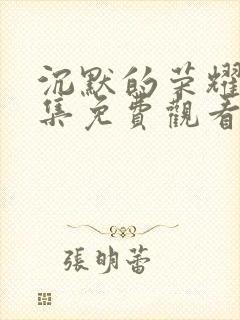 沉默的荣耀
集免費觀看
張明蕾